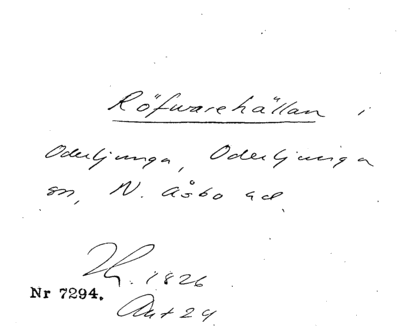 Röfwarehällan i
Oderljunga, Oderljunga
sn, N. Åsbo hd.
1826
Nr 7294.
Ant 24